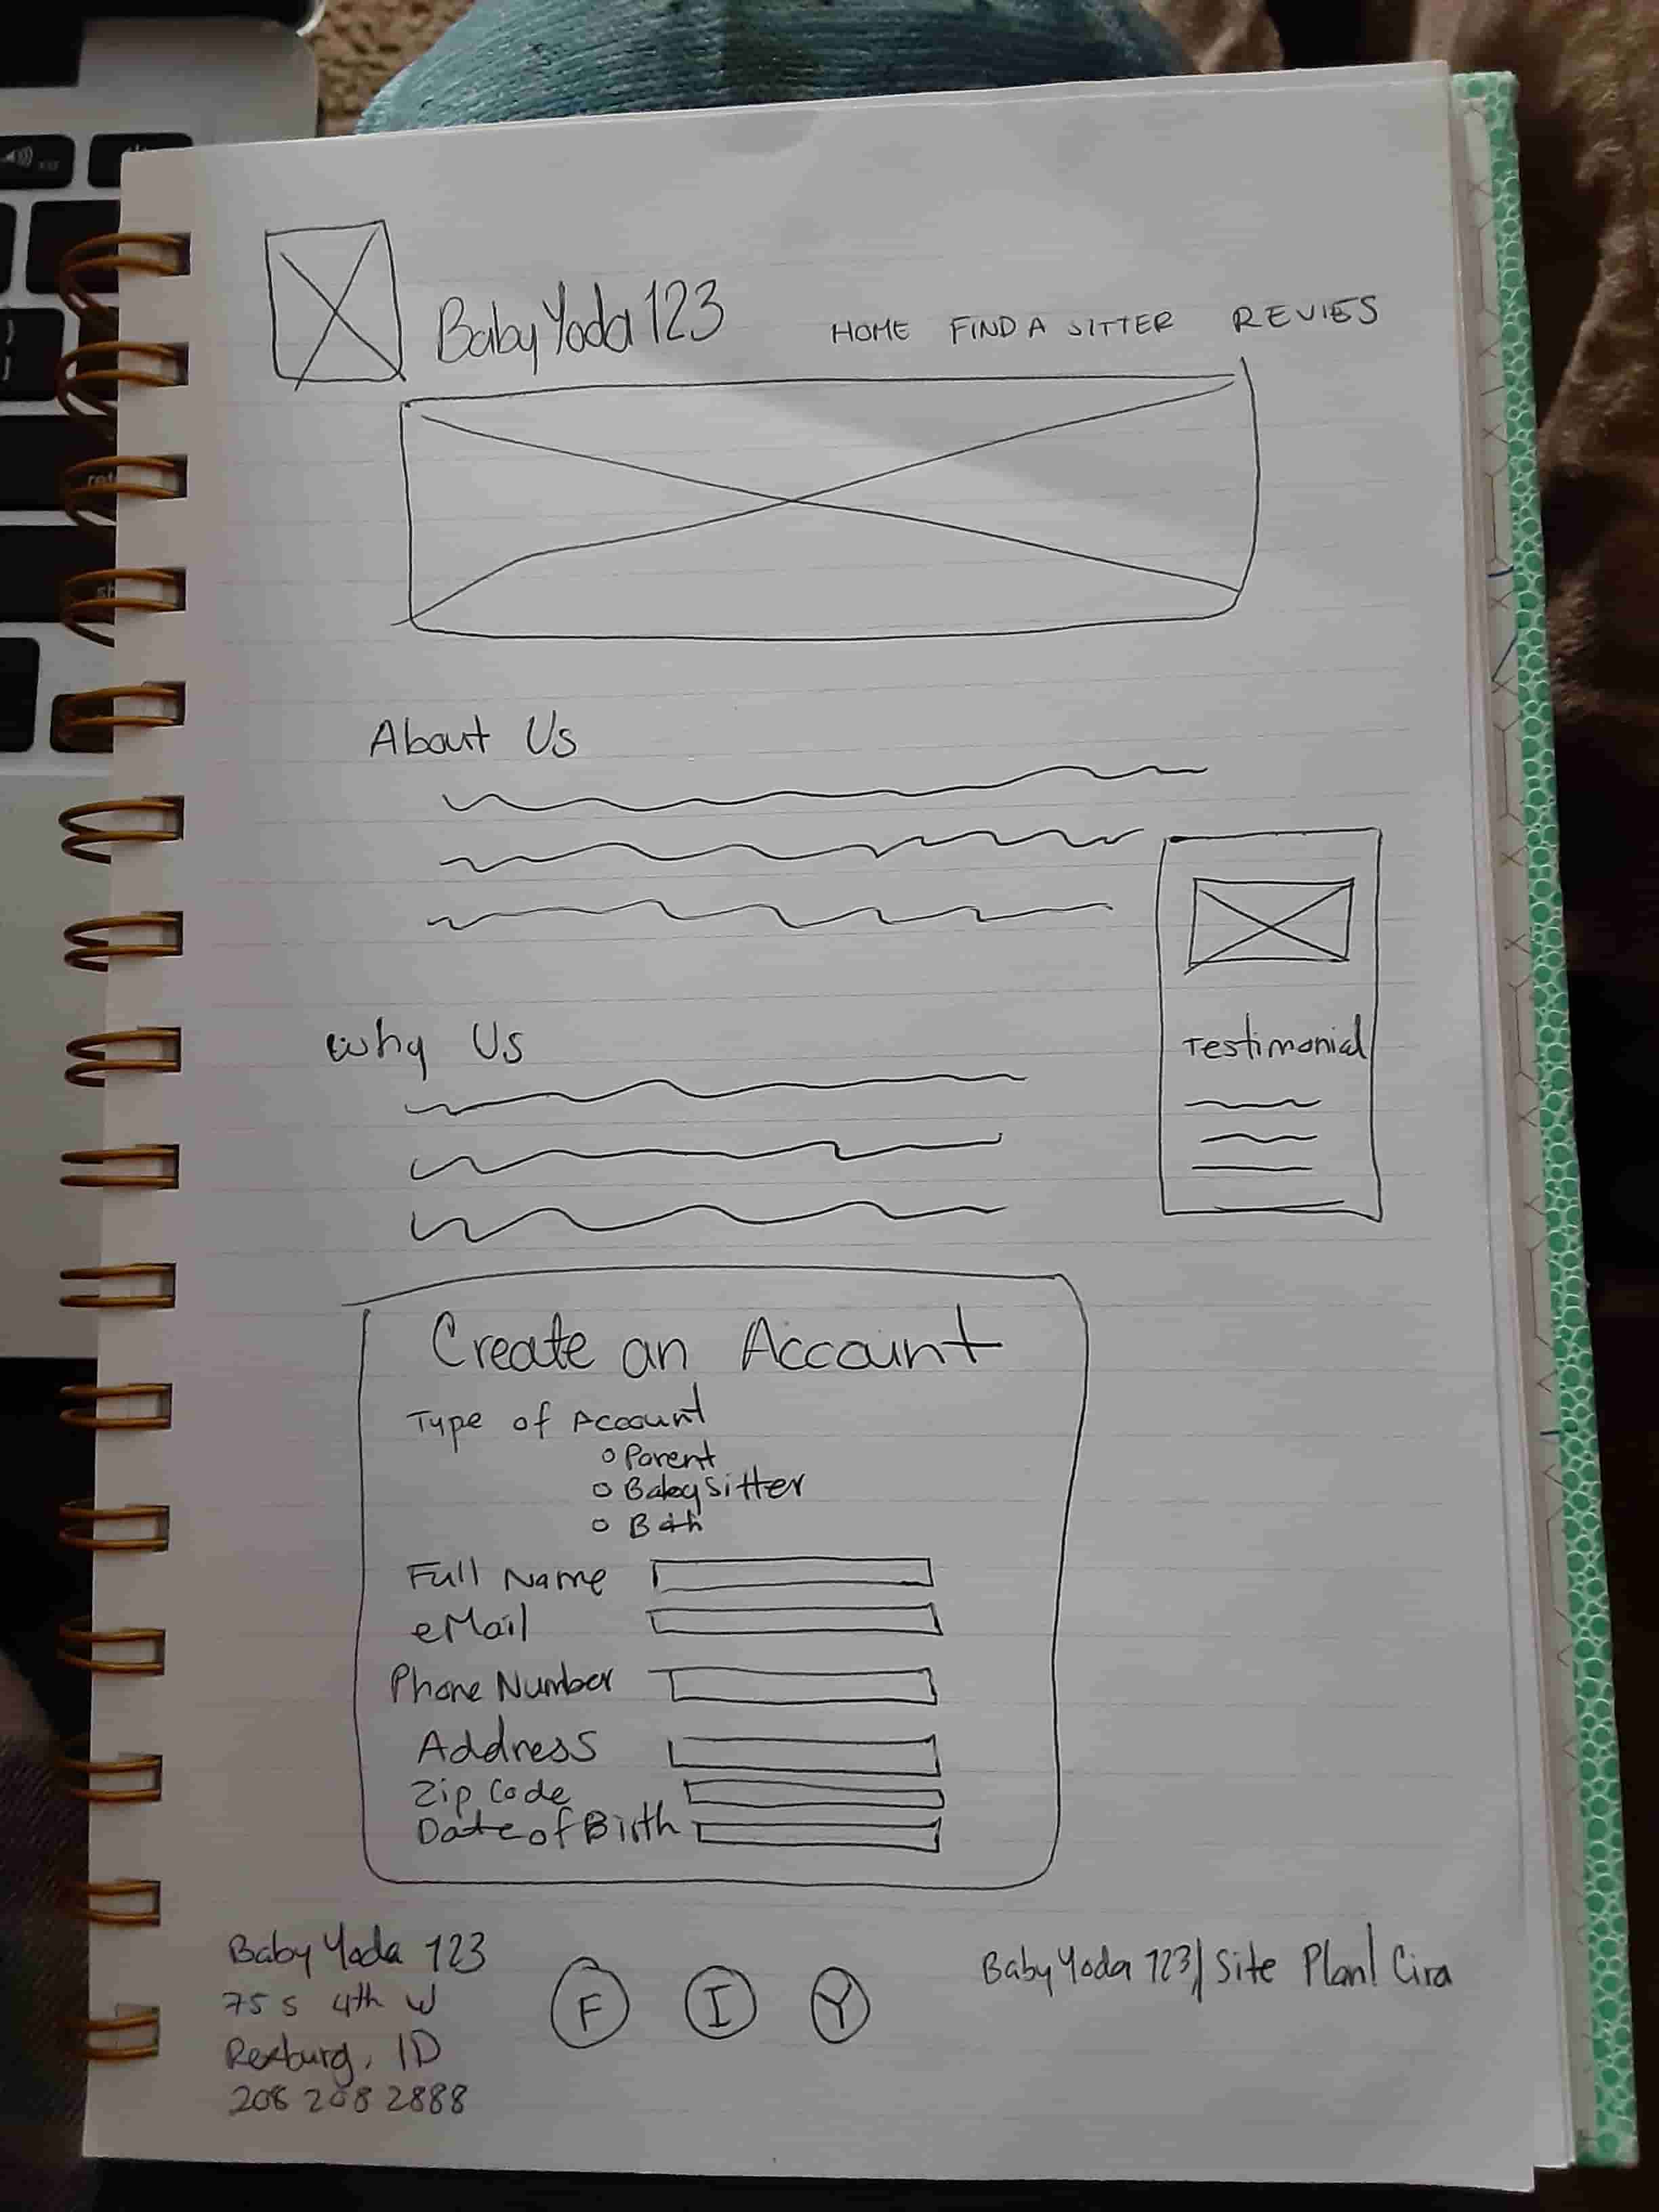 Baby Yoda 123
HOME FIND A SITTER REVIES
About Us
Testimonial
Why Us
Create an Account
Type of Account
Parent
Babysitter
Both
Full Name
eMail
Phone Number
Address
Zip Code
Date of Birth
Baby Yoda 123
75 S 4th W
Rexburg, ID
208 208 2888
F I Y
Baby Yoda 123/ Site Plan/ Cira